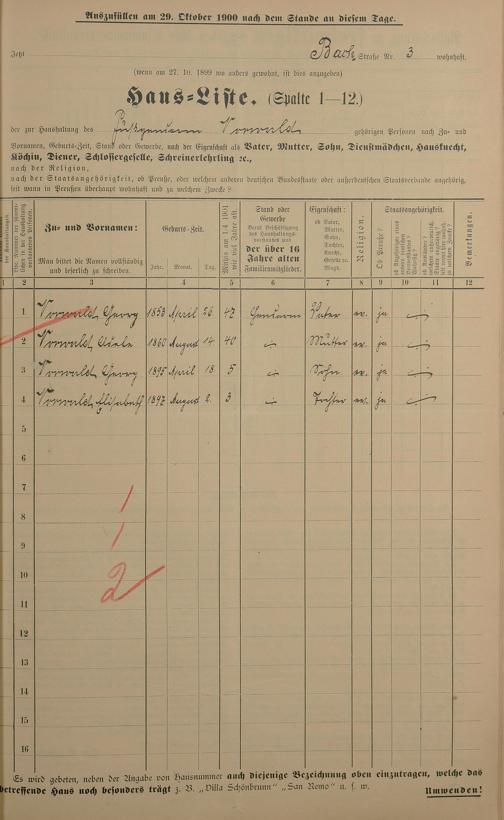 Auszufüllen am 29. Oktober 1900 nach dem Stande an diesem Tage.
Jetzt Bach Straße Nr. 3 wohnhaft.
(wenn am 27. 10. 1899 wo anders gewohnt, ist dies anzugeben)
Haus-Liste. (Spalte 1—12.)
der zur Haushaltung des Fußgendarm Vorwald gehörigen Personen nach Zu- und
Vornamen, Geburts-Zeit, Stand oder Gewerbe, nach der Eigenschaft als Vater, Mutter, Sohn, Dienstmädchen, Hausknecht,
Köchin, Diener, Schlossergeselle, Schreinerlehrling ꝛc.,
nach der Religion,
nach der Staatsangehörigkeit, ob Preuße, oder welchem anderen deutschen Bundesstaate oder außerdeutschen Staatsverbande angehörig,
seit wann in Preußen überhaupt wohnhaft und zu welchem Zwecke?
Zu- und Vornamen:
Man bittet die Namen vollständig
und leserlich zu schreiben.
Geburts-Zeit.
Jahr. Monat. Tag.
Mithin am 1./4. 1901
wie viel Jahre alt.
Stand oder
Gewerbe
der über 16
Jahre alten
Familienmitglieder.
Eigenschaft:
ob Vater,
Mutter,
Sohn,
Tochter,
Knecht,
Geselle ꝛc.
Magd.
Religion.
Staatsangehörigkeit.
Ob Preuße?
Bemerkungen.
1 2 3 4 5 6 7 8 9 10 11 12
1 Vorwald, Georg 1853 April 26. 47 Gendarm Vater ev. ja
2 Vorwald, 1860 August 14. 40 Mutter ev. ja
3 Vorwald, Georg 1895 April 18. 5 Sohn ev. ja
4 Vorwald, Elisabeth 1897 August 2. 3 Tochter ev. ja
5
6
7
8
9
10
11
12
13
14
15
16
1
1
2
Es wird gebeten, neben der Angabe von Hausnummer auch diejenige Bezeichnung oben einzutragen, welche das
betreffende Haus noch besonders trägt z. B. „Villa Schönbrunn" „San Remo" u. s. w.
Umwenden!